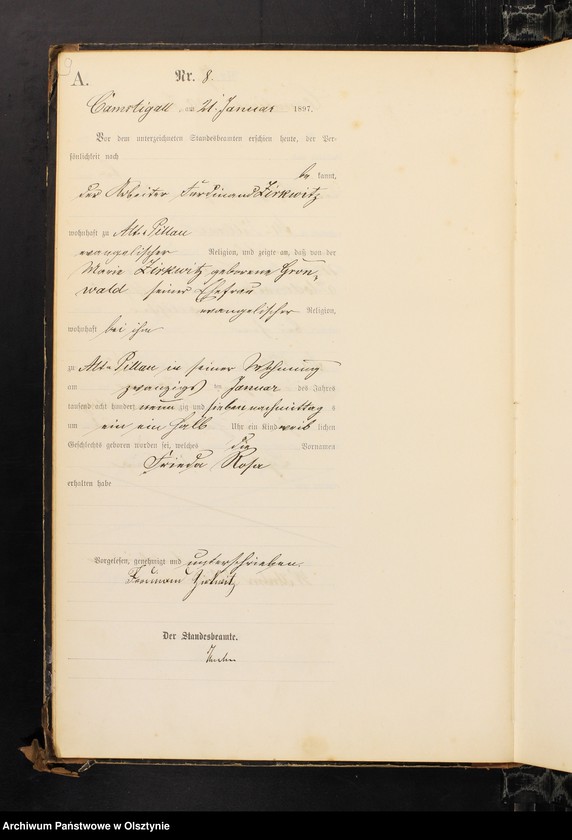 9
A.
Nr. 8.
Camstigall am 21. Januar 1897.
Vor dem unterzeichneten Standesbeamten erschien heute, der Per-
sönlichkeit nach
be kannt,
der Arbeiter Ferdinand Zirkwitz
wohnhaft zu Alt-Pillau
evangelischer Religion, und zeigte an, daß von der
Marie Zirkwitz geborene Grun-
wald seiner Ehefrau
evangelischer Religion,
wohnhaft bei ihm
zu Alt-Pillau in seiner Wohnung
am zwanzigsten Januar des Jahres
tausend acht hundert neun zig und sieben nachmittag s
um ein ein halb Uhr ein Kind weib lichen
Geschlechts geboren worden sei, welches die Vornamen
Frieda Rosa
erhalten habe
Vorgelesen, genehmigt und unterschrieben.
Ferdinand Zirkwitz
Der Standesbeamte.
Archiwum Państwowe w Olsztynie